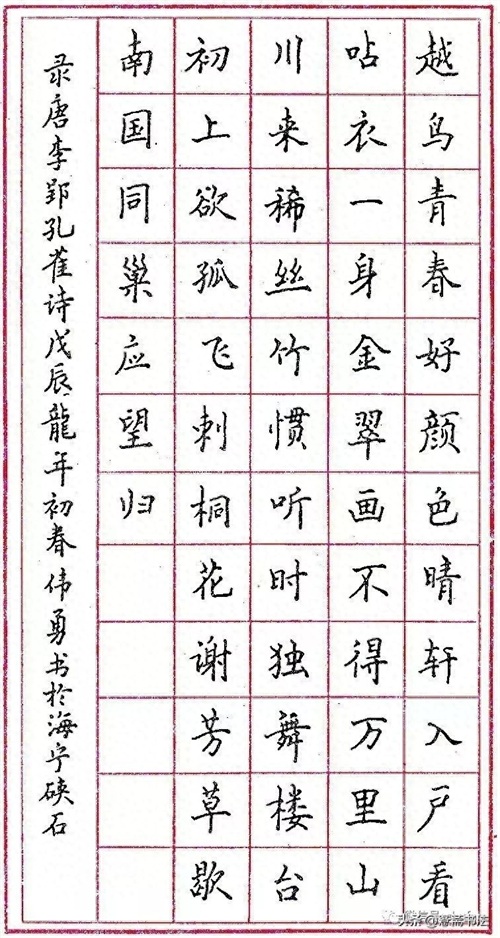 越鸟青春好颜色晴轩入户看
呫衣一身金翠画不得万里山
川来稀丝竹惯听时独舞楼台
初上欲孤飞刺桐花谢芳草歇
南国同巢应望归
录唐李郢孔雀诗戊辰龍年初春伟勇书於海宁硖石